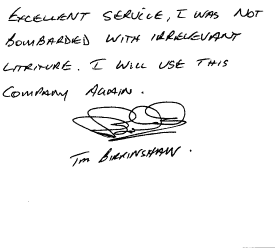 EXCELLENT SERVICE, I WAS NOT
BOMBARDED WITH IRRELEVANT
LITRITURE. I WILL USE THIS
COMPANY AGAIN.
TIM BIRKINSHAW.